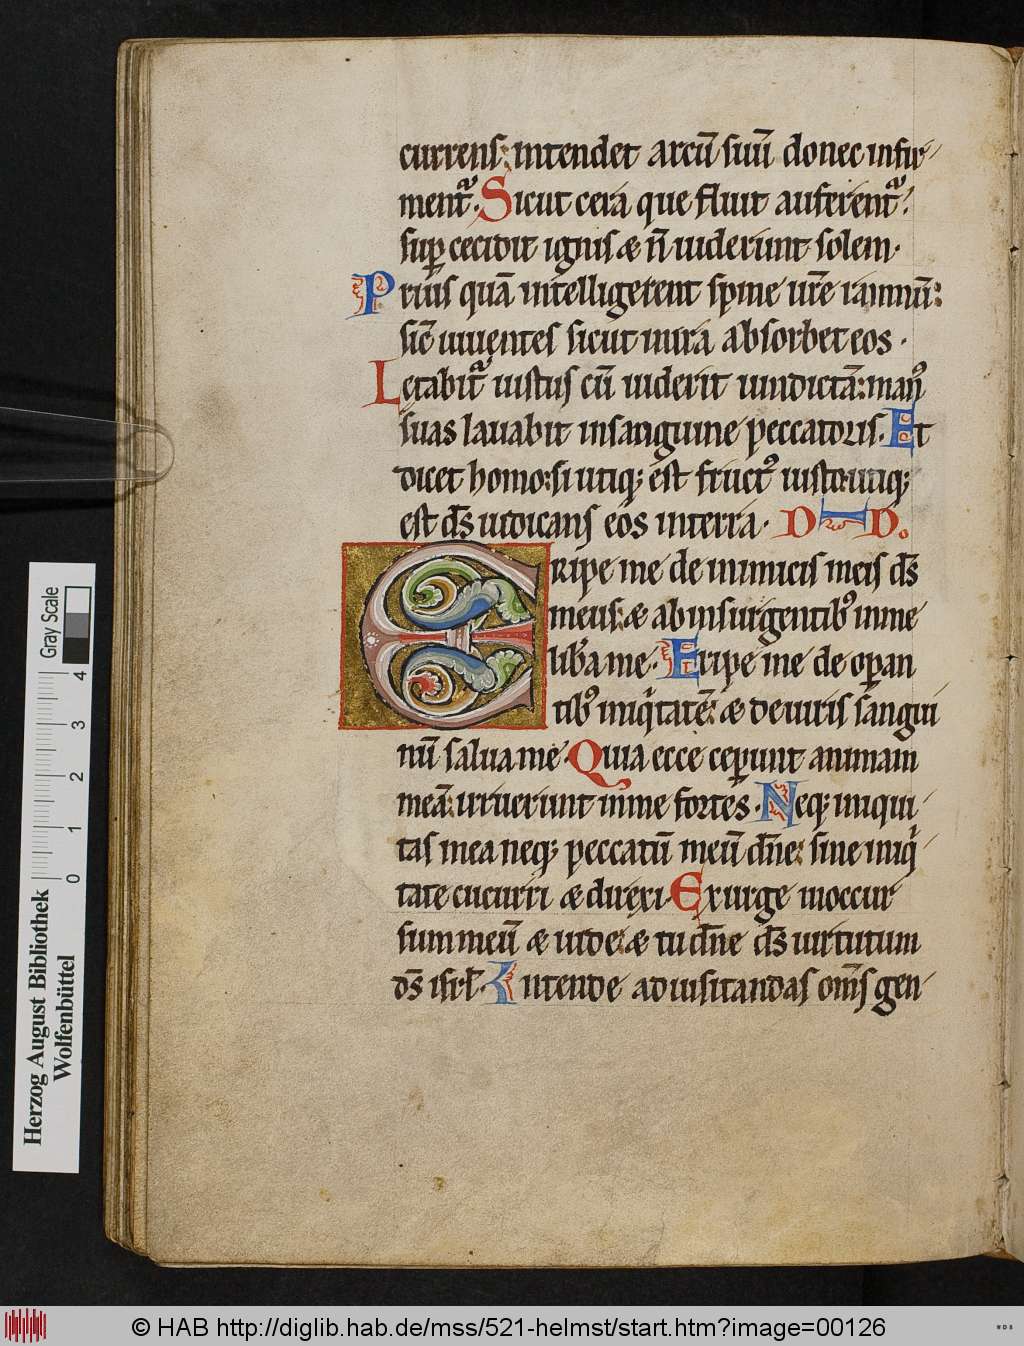 currens: intendet arcū suū donec infir
mentᷓ. Sicut cera que fluit auferentᷓ:
suꝑ cecidit ignis æ n̄ uiderunt solem.
Prius quā intelligerent spine ur̄e ramnū:
sic̄ uiuentes sicut in ira absorbet eos.
Lętabitᷓ iustus cū uiderit uindictā: manꝰ
suas lauabit insanguine peccatoris. Et
dicet homo: si utiqꝫ est fructꝰ iusto: utiqꝫ
est d̄s iudicans eos interra. D D.
ERIPE me de inimicis meis d̄s
meus: æ abinsurgentibꝰ inme
lib̄a me. Eripe me de oꝑan
tibꝰ iniqͥtatē: æ deuiris sangui
nū salua me. Quia ecce ceꝑunt animam
meā: irruerunt inme fortes. Neqꝫ iniqui
tas mea neqꝫ peccatū meū dn̄e: sine iniqͥ
tate cucurri æ direxi. Exurge inoccur
sum meū æ uide: æ tu dn̄e d̄s uirtutum
d̄s isrl̄. Intende aduisitandas om̄s gen
Gray Scale
4
3
2
1
0
Herzog August Bibliothek
Wolfenbüttel
© HAB http://diglib.hab.de/mss/521-helmst/start.htm?image=00126
WDB